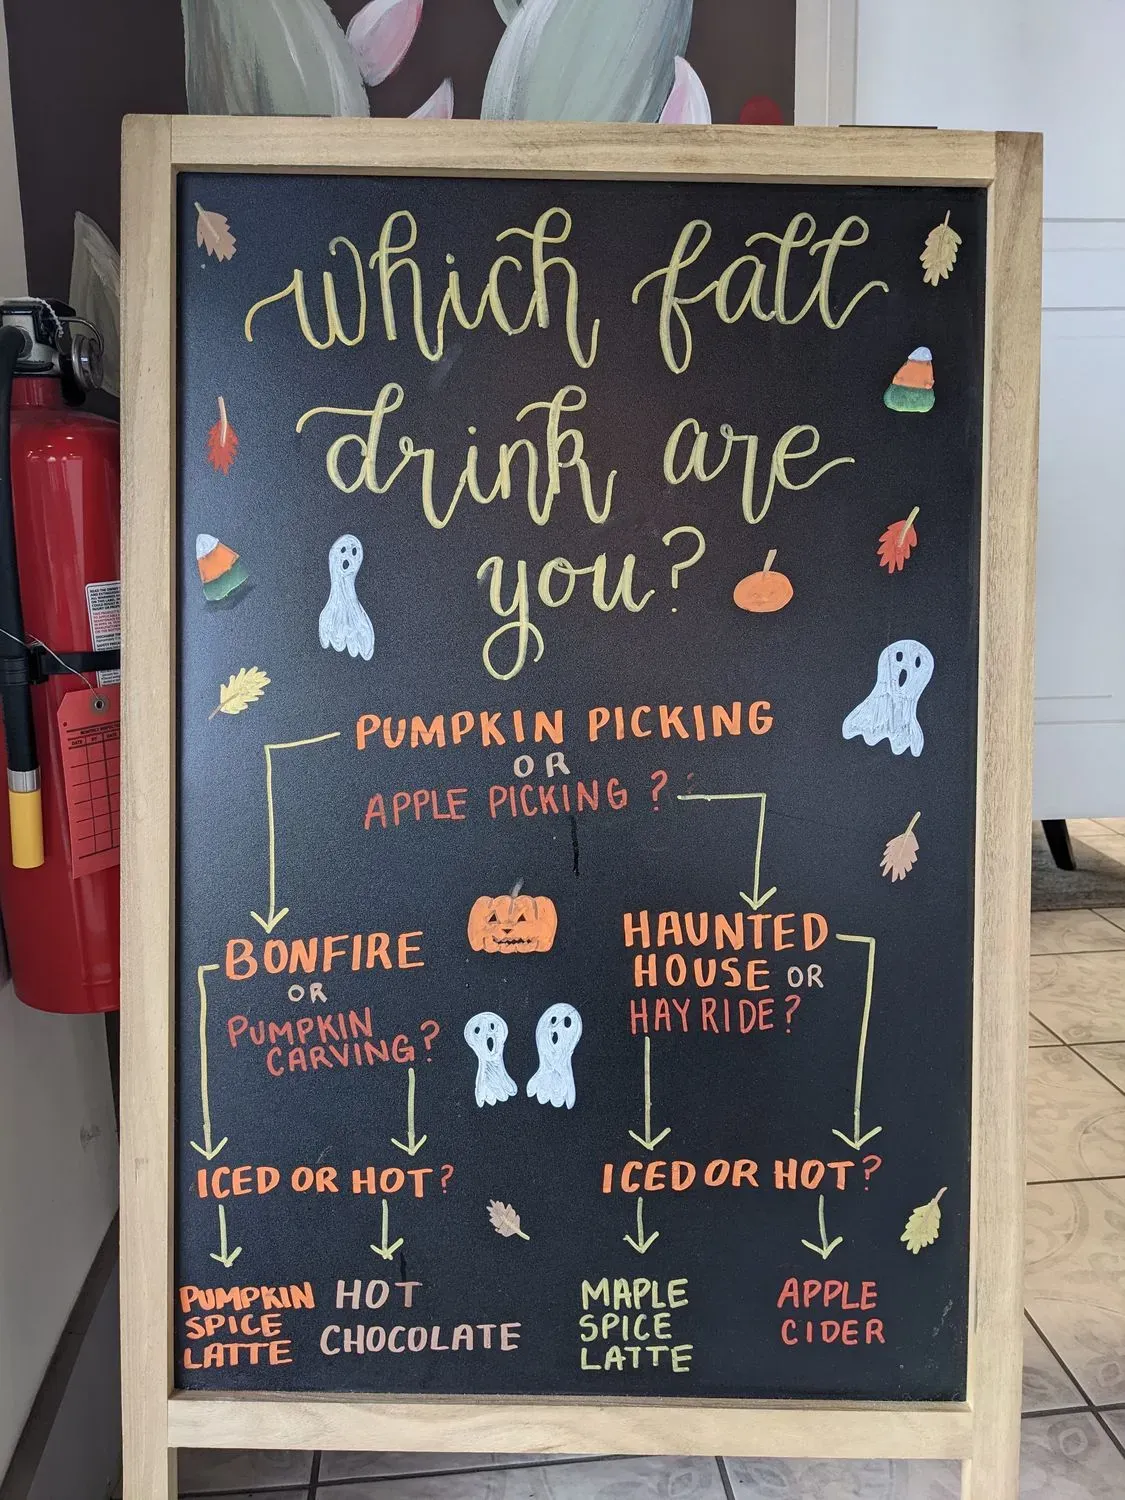 which fall
drink are
you?
PUMPKIN PICKING
OR
APPLE PICKING ?
BONFIRE
OR
PUMPKIN
CARVING?
HAUNTED
HOUSE OR
HAYRIDE?
ICED OR HOT?
ICED OR HOT?
PUMPKIN
SPICE
LATTE
HOT
CHOCOLATE
MAPLE
SPICE
LATTE
APPLE
CIDER